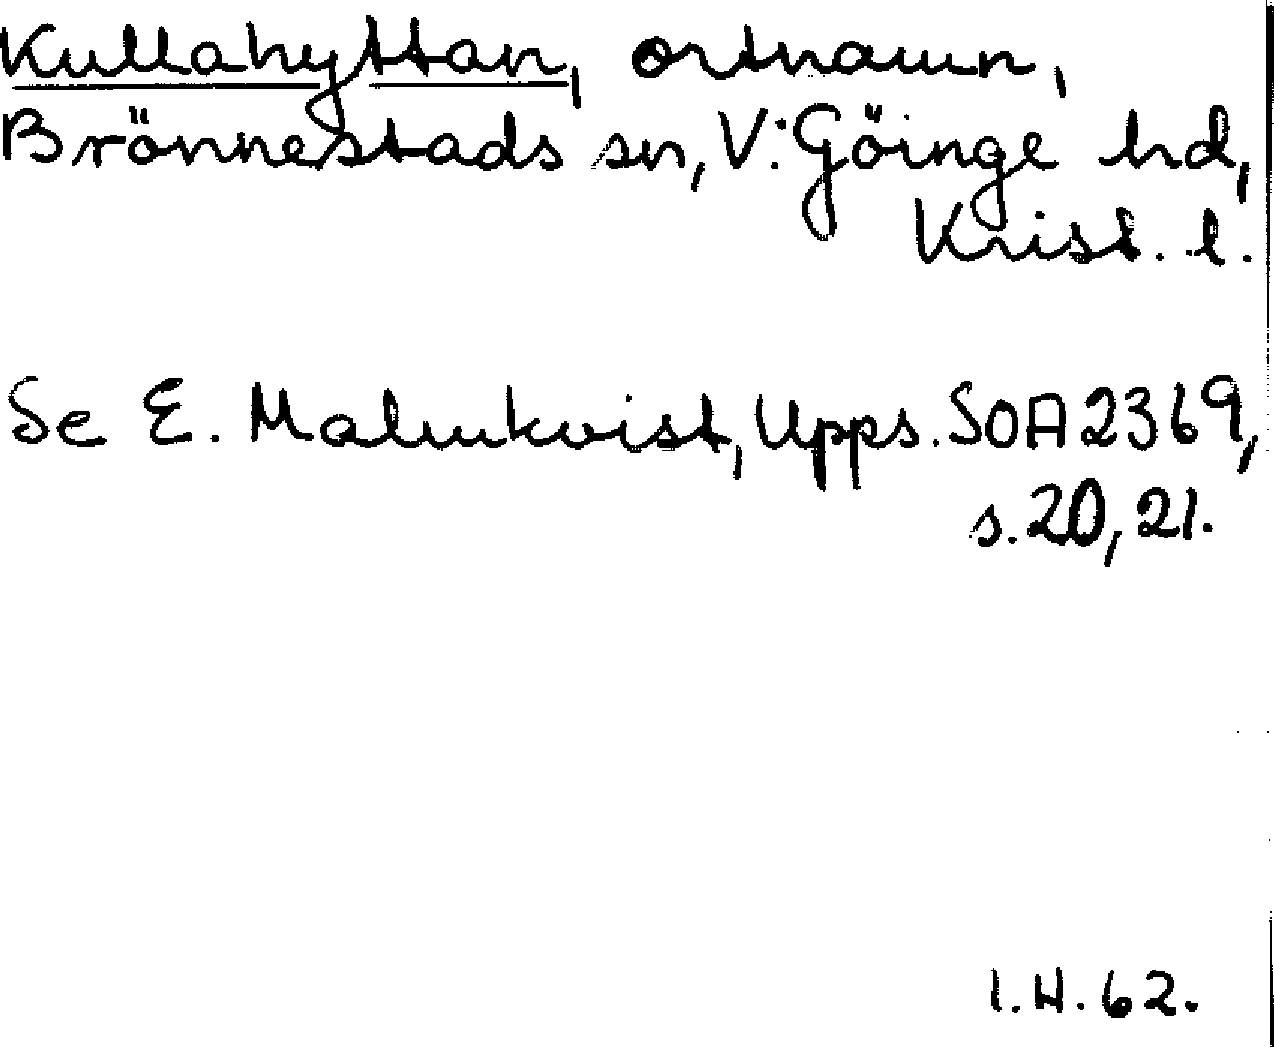 Kullahyttan, ortnamn,
Brönnestads sn, V. Göinge hd,
Krist. l.
Se E. Malmkvist, Upps. SOA 2369,
s. 20, 21.
I. H. 62.